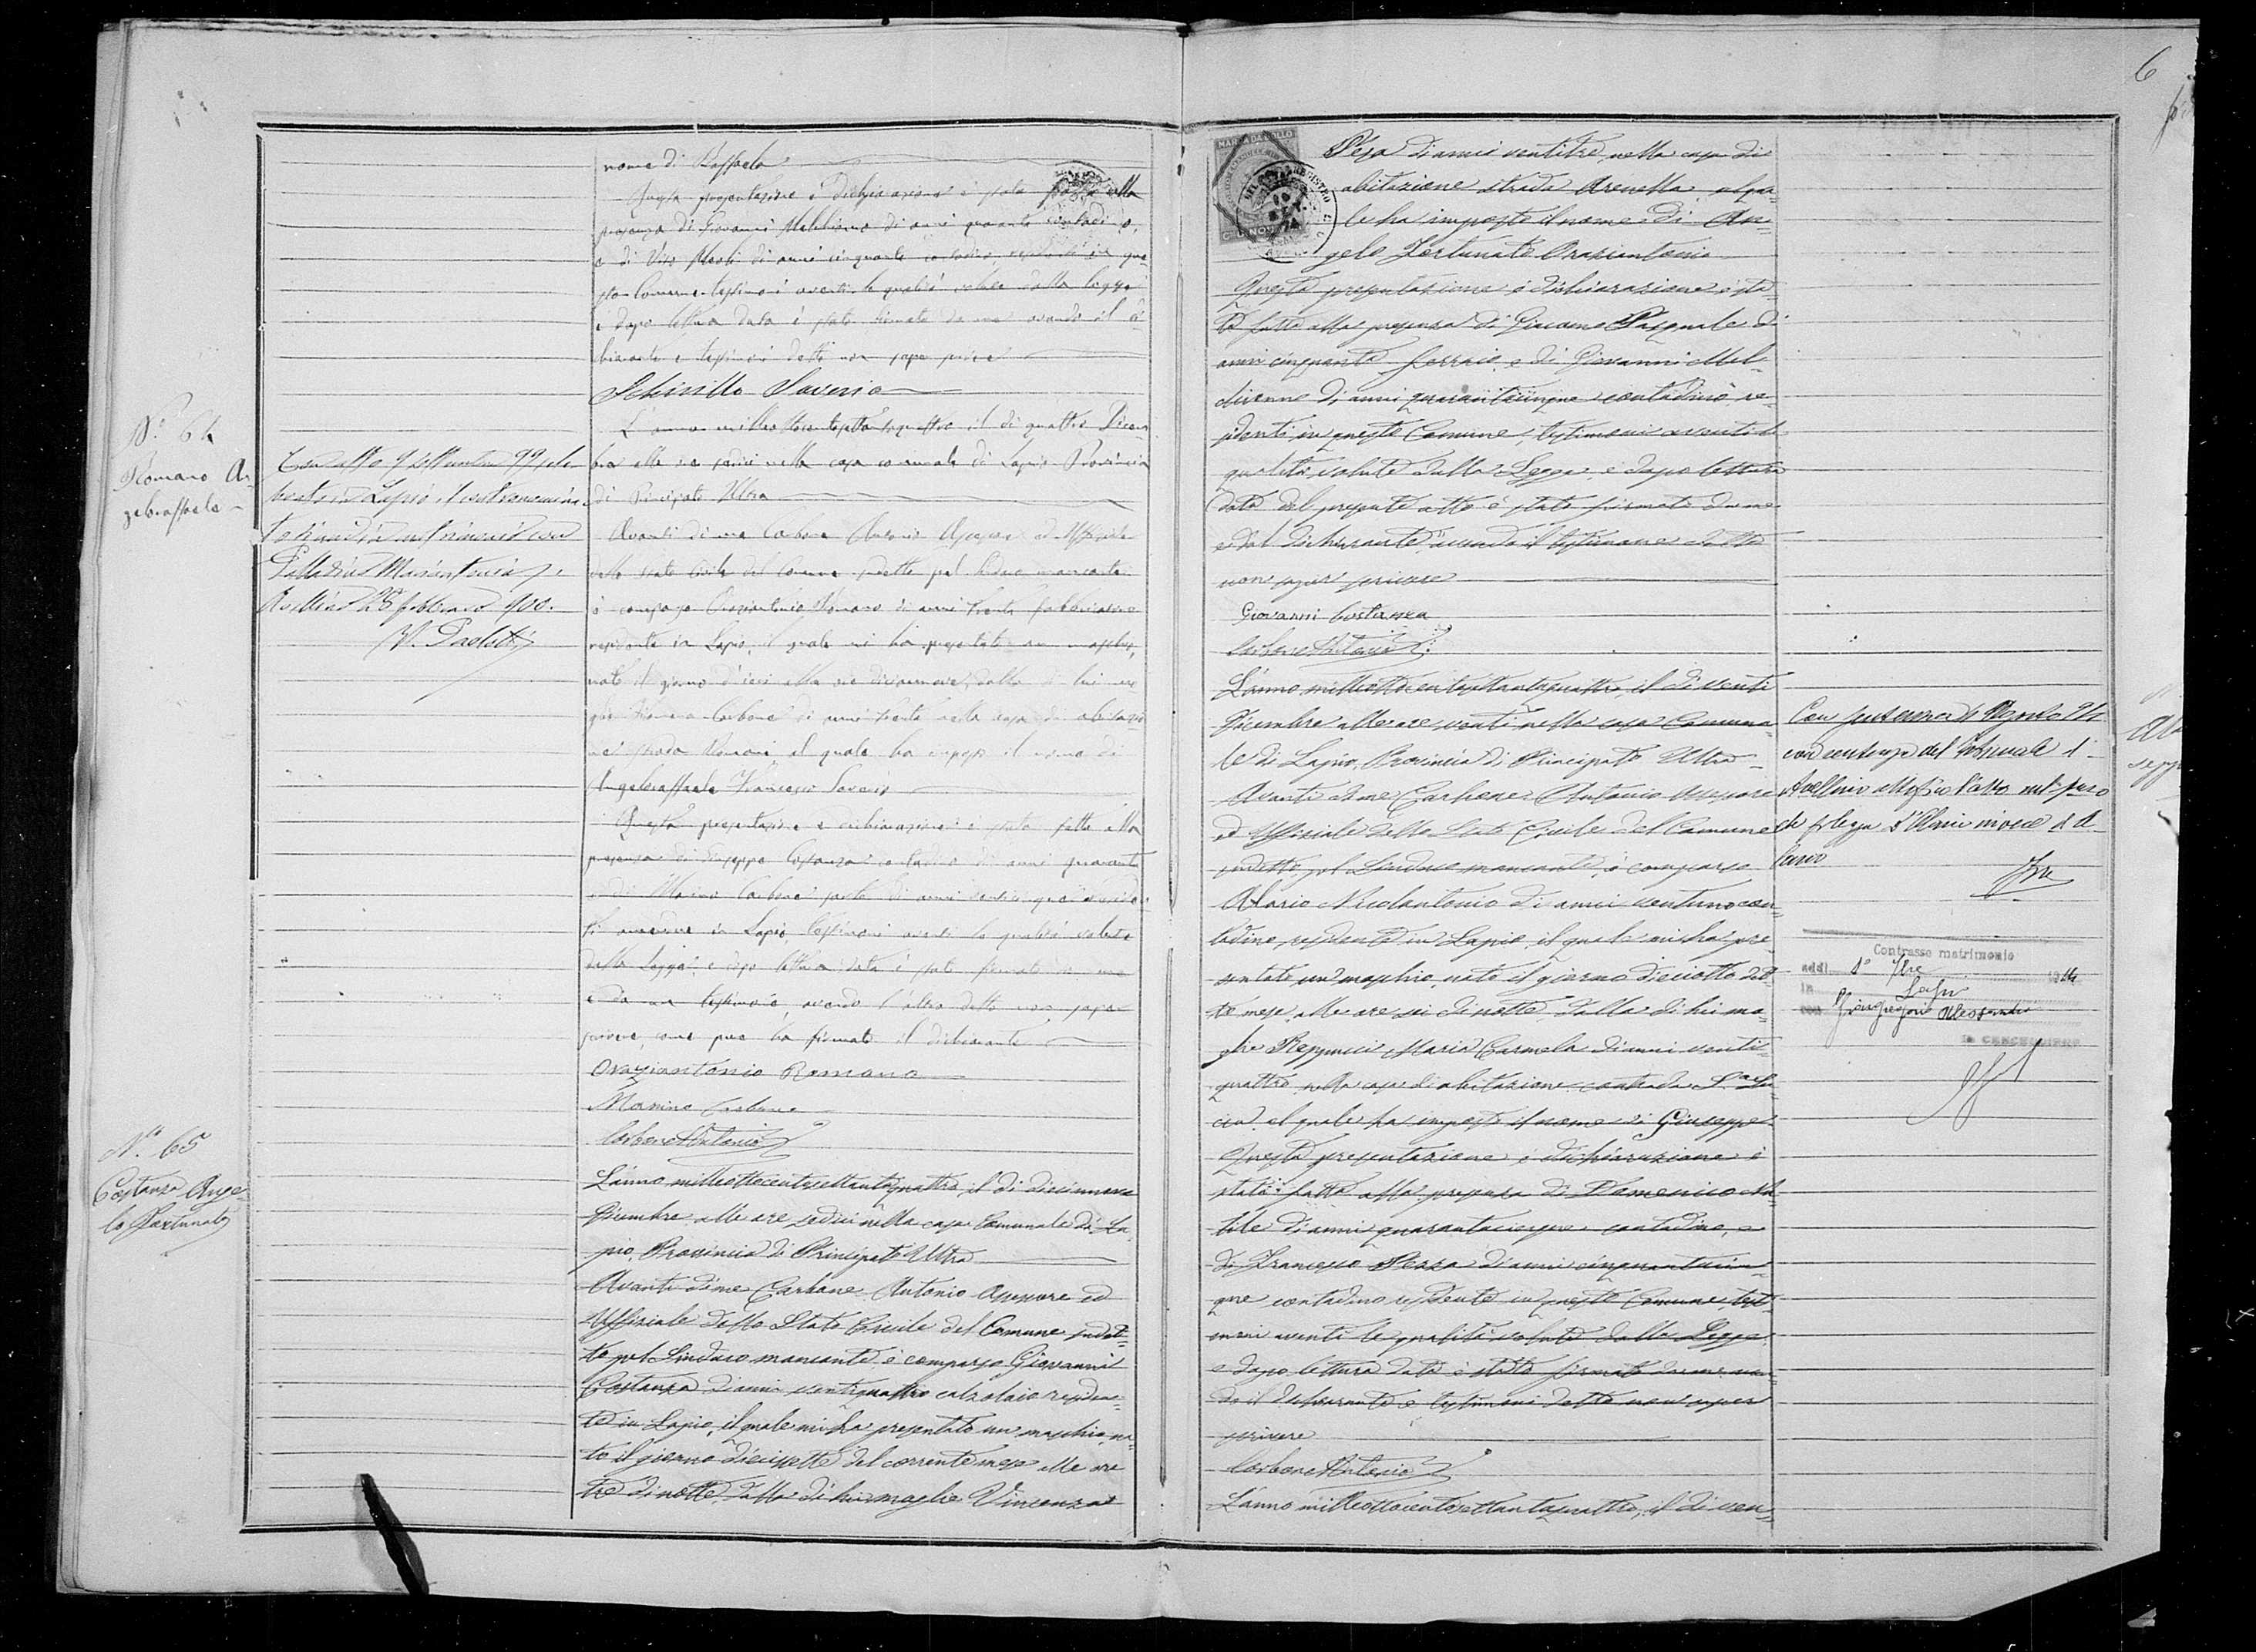 6
nome di Raffaele
Questa presentazione e dichiarazione è stata fatta alla
presenza di Giovanni Melchionno di anni quaranta contadino,
e di Vito Meoli di anni cinquanta contadino, residenti in que-
sto Comune testimoni aventi le qualità volute dalla legge
e dopo lettura data è stato firmato da me avendo il di-
chiarante e testimoni detto non saper scrivere
Schirillo Saverio
N.° 64
Romano An-
geloraffaele
L'anno milleottocentosettantaquattro il di quattro Dicem-
bre alle ore sedici nella casa comunale di Lapio Provincia
di Principato Ultra
Avanti di me Carbone Antonio Assessore ed Uffiziale
dello Stato Civile del Comune sudetto pel Sindaco mancante
è comparso Oraziantonio Romano di anni trenta
residente in Lapio, il quale mi ha presentato un maschio,
nato il giorno di ieri alle ore diciannove, dalla di lui mo-
glie Carbone di anni trenta nella casa di abitazio-
ne strada Romani al quale ha imposto il nome di
Angeloraffaele Francesco Saverio
Questa presentazione e dichiarazione è stata fatta alla
presenza di Giuseppe Costanza contadino di anni quaranta
e di Marino Carbone sarto di anni venticinque residen-
ti amendue in Lapio, testimoni aventi le qualità volute
dalla Legge, e dopo lettura data è stato firmato da me
e da un testimonio, avendo l'altro detto non saper
scrivere, come pure ha firmato il dichiarante
Oraziantonio Romano
Marino Carbone
Carbone Antonio
Con atto 9 settembre 99
in Lapio
matrimonio con
Palladino Mariantonia
Avellino 25 febbraio 900.
V. Paolotti
N.° 65
Costanza Ange-
lo Fortunato
L'anno milleottocentosettantaquattro, il di diciannove
Dicembre alle ore sedici nella casa Comunale di La-
pio, Provincia di Principato Ultra
Avanti di me Carbone Antonio Assessore ed
Uffiziale dello Stato Civile del Comune sudet-
to pel Sindaco mancante è comparso Giovanni
Costanza di anni ventiquattro calzolaio residen-
te in Lapio, il quale mi ha presentato un maschio, na-
to il giorno diciassette del corrente mese alle ore
tre di notte, dalla di lui moglie Vincenza
Pesa di anni ventitre, nella casa di
abitazione strada Arenella, al qua-
le ha imposto il nome di An-
gelo Fortunato Oraziantonio
Questa presentazione e dichiarazione è sta-
ta fatta alla presenza di Giacomo Pasquale di
anni cinquanta ferraio, e di Giovanni Mel-
chionno di anni quarantacinque contadino, re-
sidenti in questo Comune, testimoni aventi le
qualità volute dalla Legge, e dopo lettura
data del presente atto è stato firmato da me
e dal dichiarante, avendo il testimone detto
non saper scrivere
Giovanni Costanza
Carbone Antonio
L'anno milleottocentosettantaquattro, il di venti
Dicembre alle ore venti nella casa Comuna-
le di Lapio, Provincia di Principato Ultra
Avanti di me Carbone Antonio Assessore
ed Uffiziale dello Stato Civile del Comune
sudetto pel Sindaco mancante, è comparso
Alario Nicolantonio di anni ventuno con-
tadino residente in Lapio, il quale mi ha pre-
sentato un maschio, nato il giorno dieciotto det-
to mese, alle ore sei di notte, dalla di lui mo-
glie Reppucci Maria Carmela di anni venti-
quattro, nella casa di abitazione contrada S.a Lu-
cia al quale ha imposto il nome di Giuseppe
Questa presentazione e dichiarazione è
stata fatta alla presenza di Domenico
di anni quarantacinque contadino, e
di Francesco Pesza di anni cinquantacin-
que contadino residente in questo Comune, testi-
moni aventi le qualità volute dalla Legge,
e dopo lettura data è stato firmato da me, aven-
do il dichiarante e testimoni detto non saper
scrivere
Carbone Antonio
L'anno milleottocentosettantaquattro, il di ven-
Con sentenza
del Tribunale di
Avellino
Contrasse matrimonio
addi
in
con Giangregorio Alessand